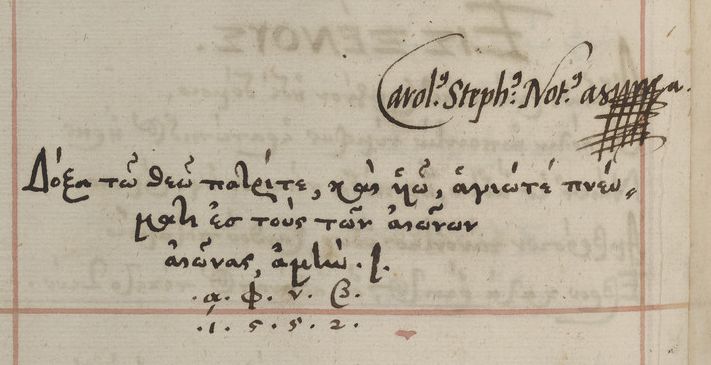 Carol⁹. Steph⁹. Not⁹.
Δόξα τῷ θεῷ πατρίτε, καὶ ὑιῷ, ἁγιώτέ πνεύ„
ματι ἐσ τοὺς τῶν αἰώνων
αἰῶνας, ἀμὴν.
.α. φ. ν. β.
.1. 5. 5. 2.